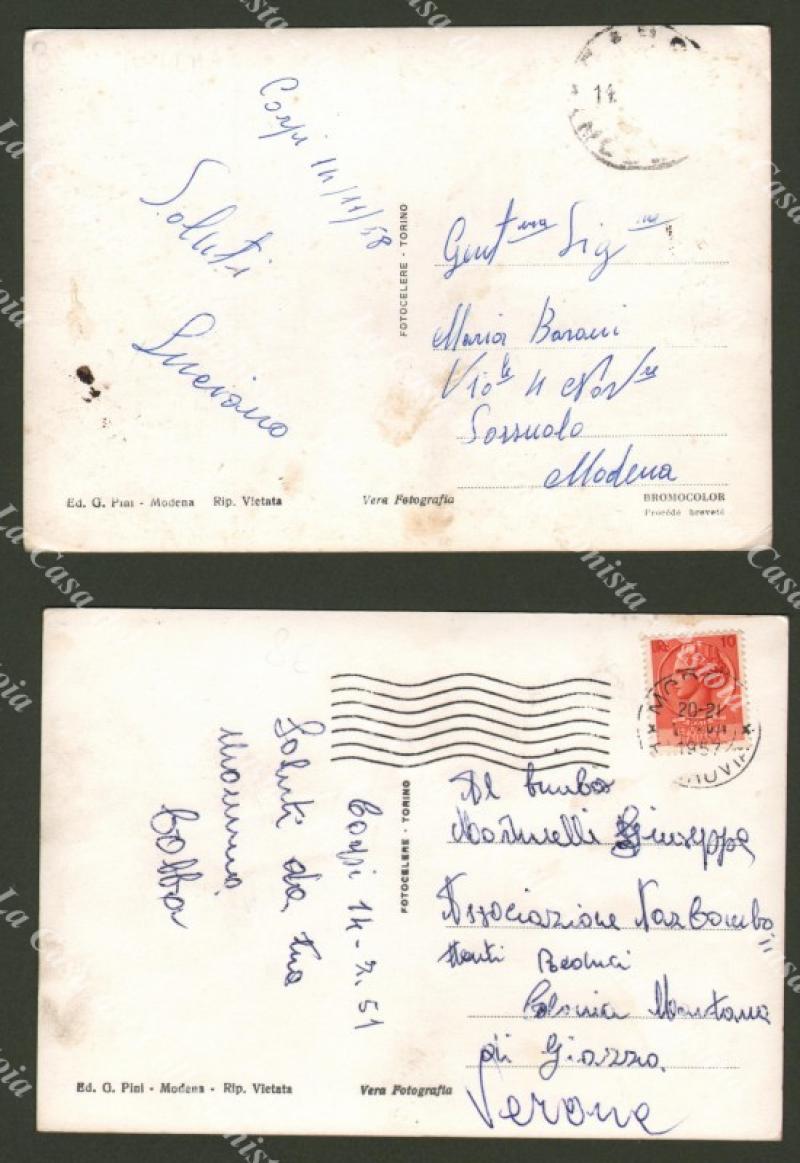 Carpi 14/11/58
Saluti
Luciano
Gent ma Sig na
Maria Barani
Via le 4 Nov re
Sassuolo
Modena
14
FOTOCELERE - TORINO
Ed. G. Pini - Modena Rip. Vietata
Vera Fotografia
BROMOCOLOR
Procédé breveté
10
20-21
1957
Al bimbo
Martinelli Giuseppe
Associazione Naz Comba=
ttenti Reduci
Colonia Montana
di Giazza
Verona
Carpi 14-7.57
Saluti da tua
mamma
FOTOCELERE - TORINO
Ed. G. Pini - Modena - Rip. Vietata
Vera Fotografia
La Casa